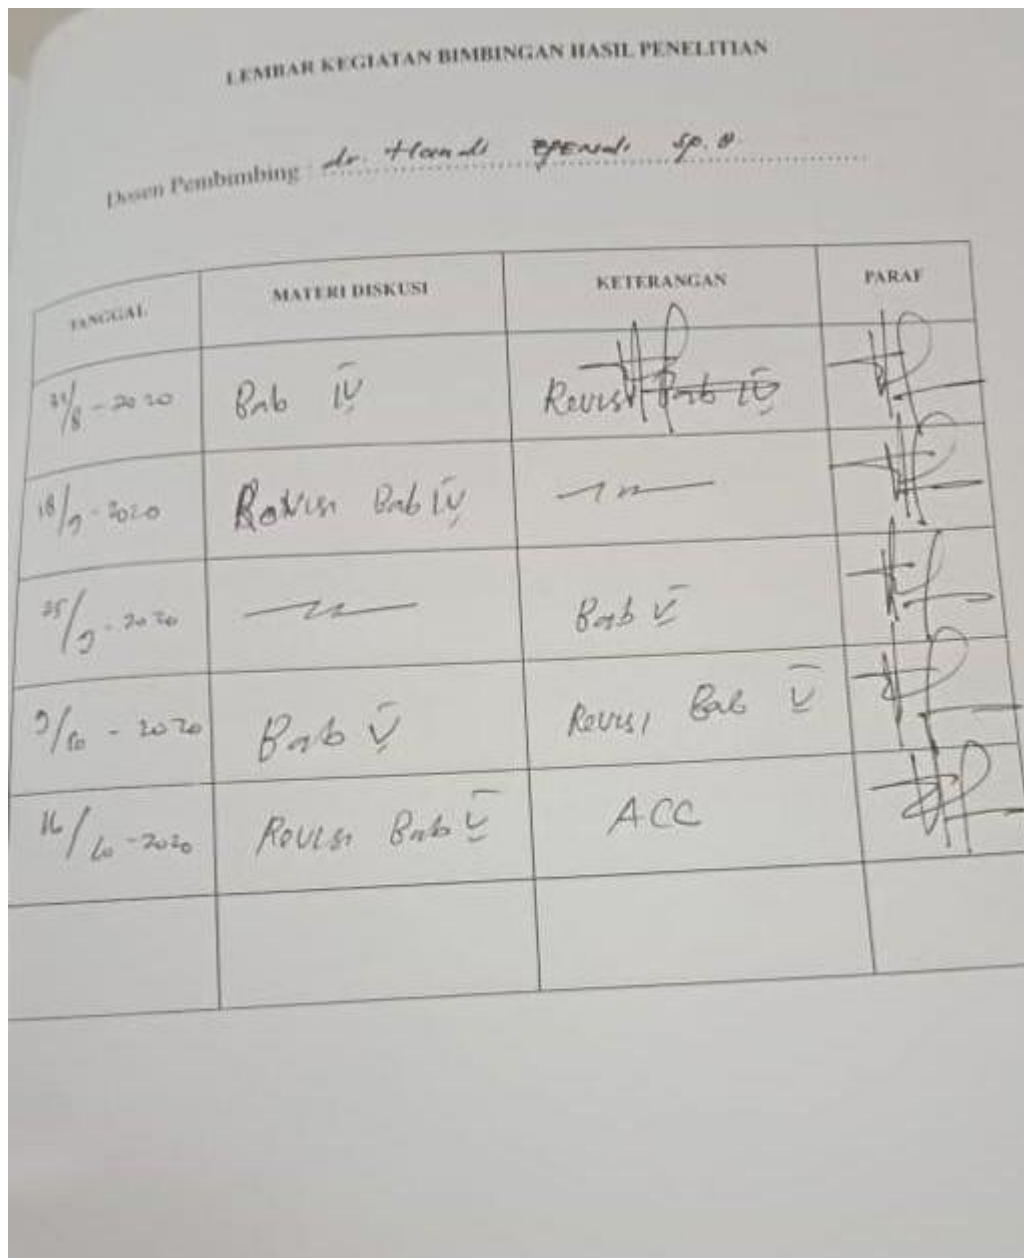 LEMBAR KEGIATAN BIMBINGAN HASIL PENELITIAN
Dosen Pembimbing : dr. Handi Sp. B
TANGGAL MATERI DISKUSI KETERANGAN PARAF
31/8 - 2020 Bab IV Revisi Bab IV
18/9 - 2020 Revisi Bab IV
25/9 - 2020 Bab V
9/10 - 2020 Bab V Revisi Bab V
16/10 - 2020 Revisi Bab V ACC